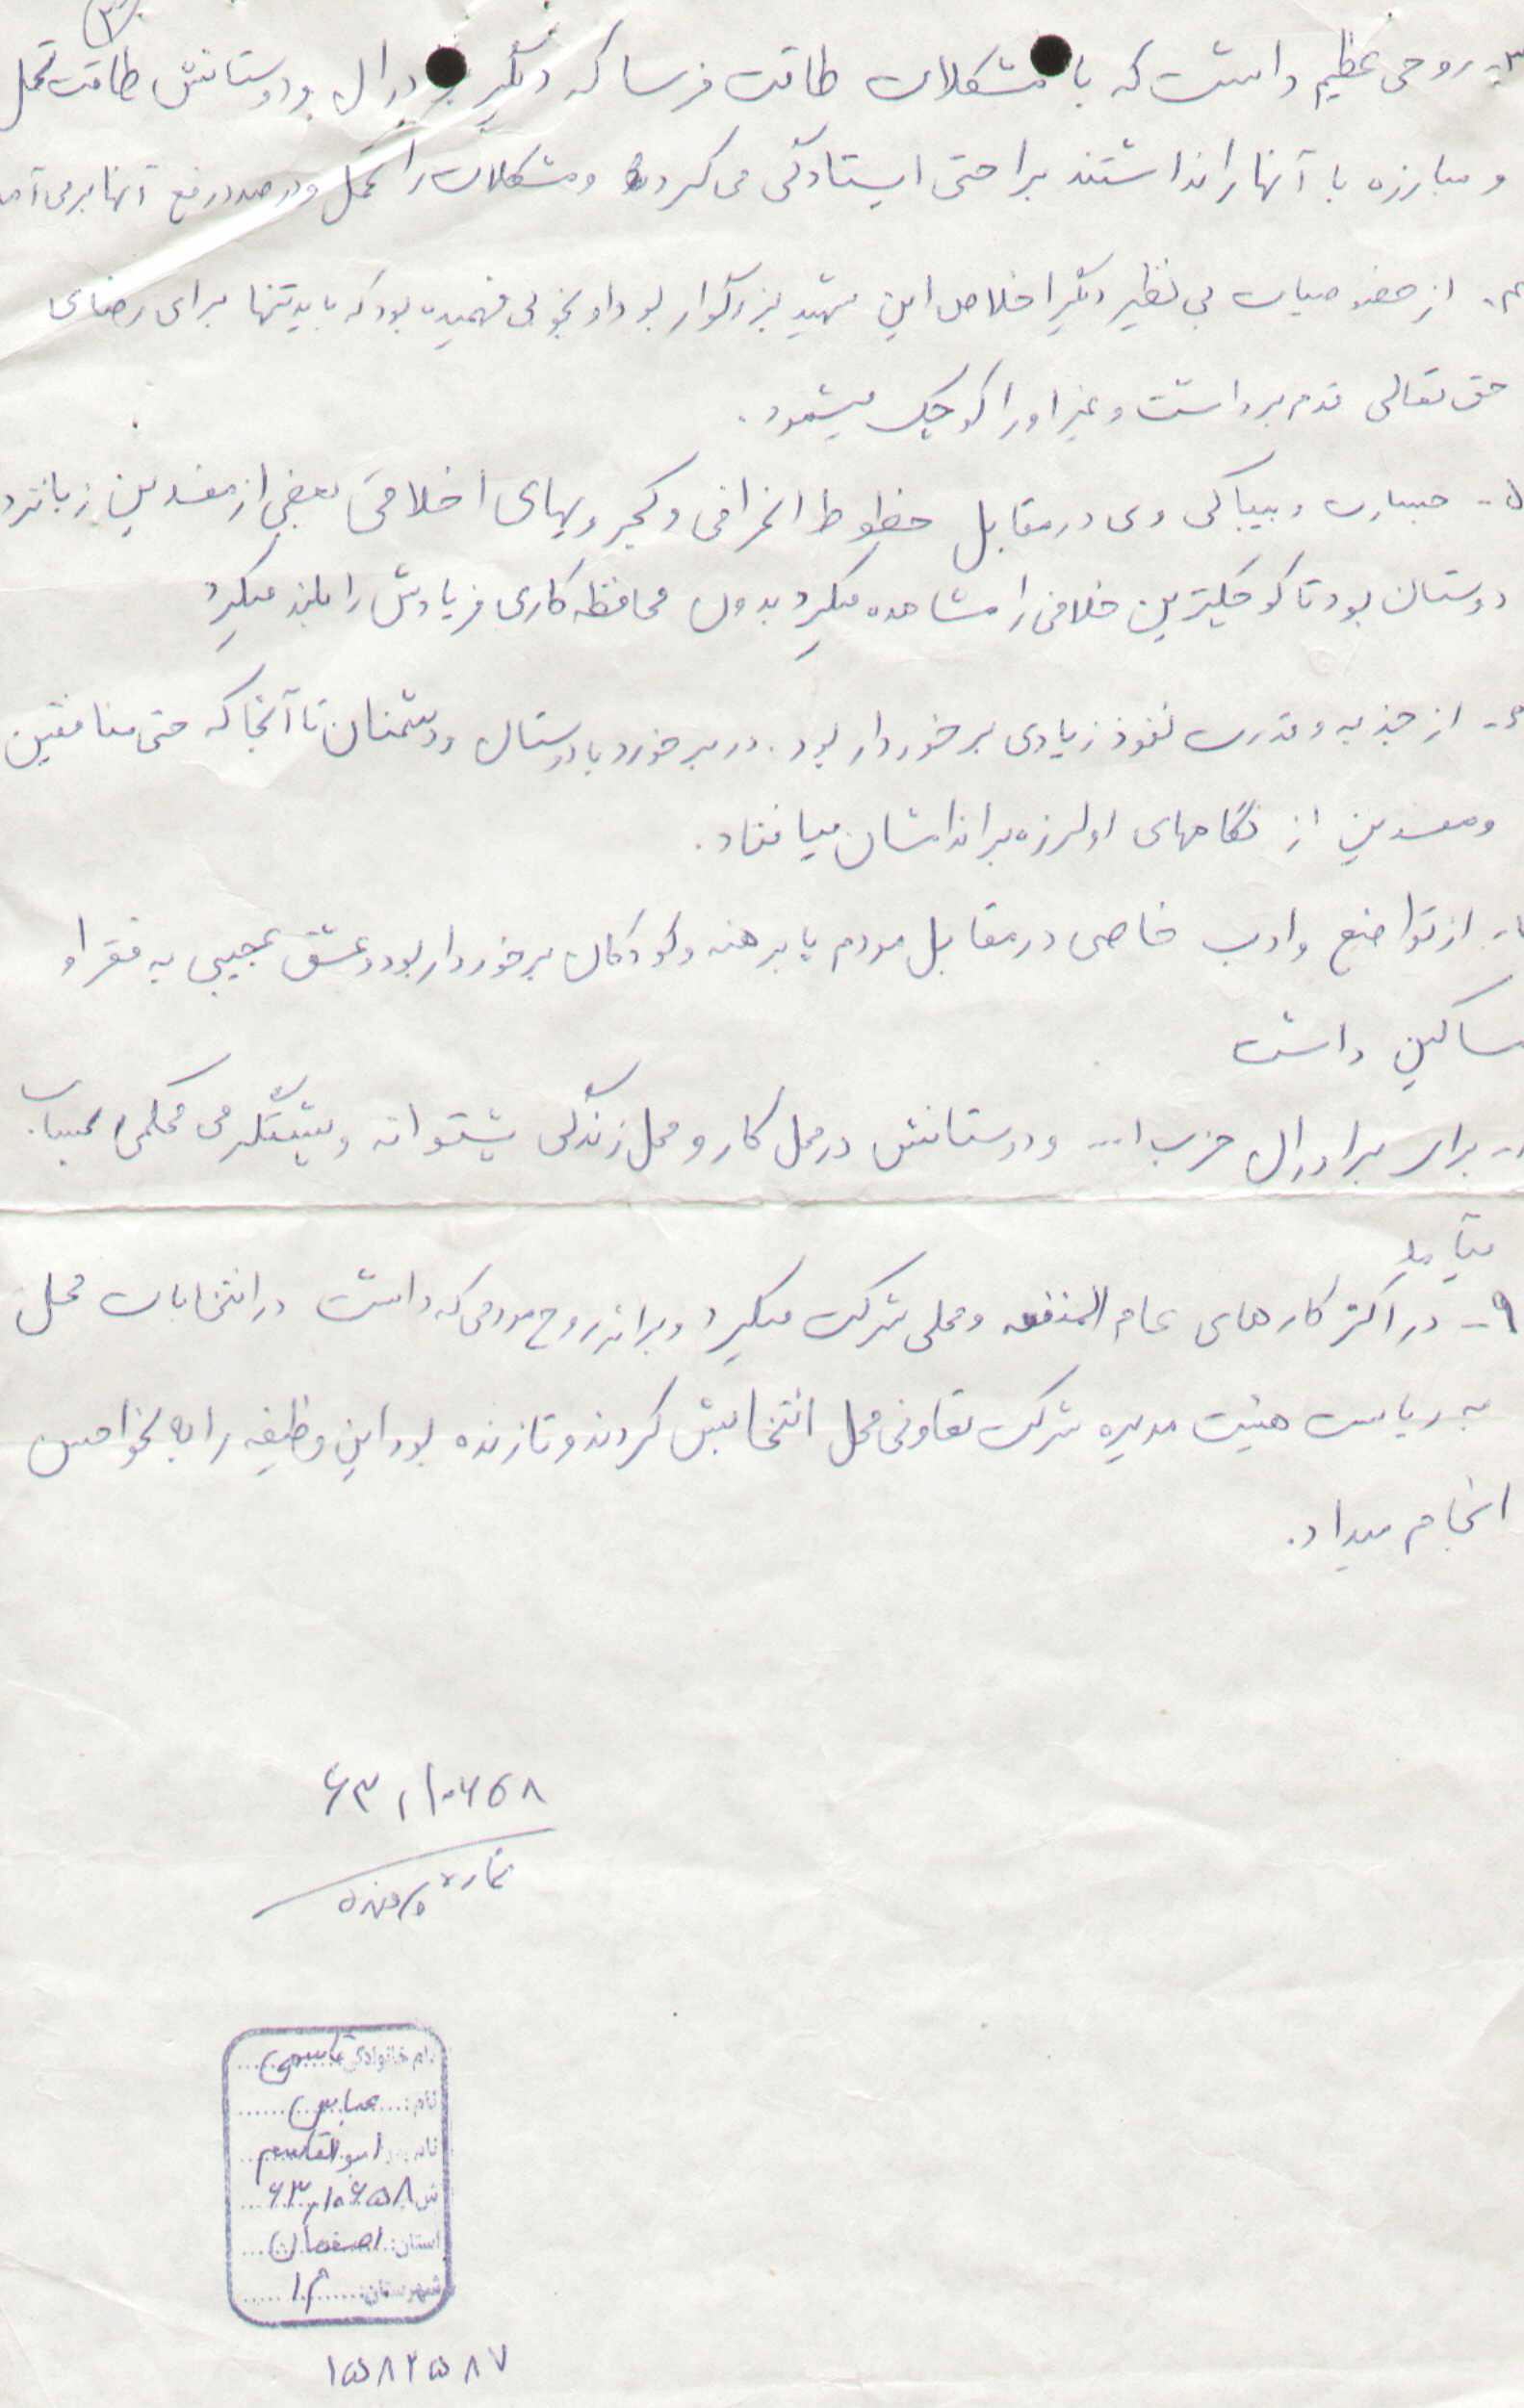 ۳
۳- روحی عظیم داشت که با مشکلات طاقت فرسا که دیگر برادران و دوستانش طاقت تحمل
و مبارزه با آنها را نداشتند براحتی ایستادگی می کرد و مشکلات را تحمل و درصدد رفع آنها برمی آمد
۴- از خصوصیات بی نظیر دیگر اخلاص این شهید بزرگوار بود او بخوبی فهمیده بود که باید تنها برای رضای
حق تعالی قدم برداشت و غیر او را کوچک میشمرد.
۵- جسارت و بیباکی وی در مقابل خطوط انحرافی و کجرویهای اخلاقی بعضی از مفسدین زبانزد
دوستان بود تا کوچکترین خلافی را مشاهده میکرد بدون محافظه کاری فریادش را بلند میکرد
۶- از جذبه و قدرت نفوذ زیادی برخوردار بود. در برخورد با دوستان و دشمنان تا آنجا که حتی منافقین
و مفسدین از نگاههای او لرزه بر اندامشان میافتاد.
۷- از تواضع و ادب خاصی در مقابل مردم پابرهنه و کودکان برخوردار بود و عشق عجیبی به فقرا و
مساکین داشت
۸- برای برادران حزب ا... و دوستانش در محل کار و محل زندگی پشتوانه و پشتگرمی محکمی بحساب
میآمد
۹- در اکثر کارهای عام المنفعه و محلی شرکت میکرد و براثر روح مردمی که داشت در انتخابات محل
به ریاست هیئت مدیره شرکت تعاونی محل انتخابش کردند و تا زنده بود این وظیفه را به نحو احسن
انجام میداد.
۶۳۱۱۰۶۵۸
شماره پرونده
نام خانوادگی: قاسمی
نام: عباس
نام پدر: ابوالقاسم
ش ۶۳۱۰۶۵۸
استان: اصفهان
شهرستان:
۱۵۸۲۵۸۷